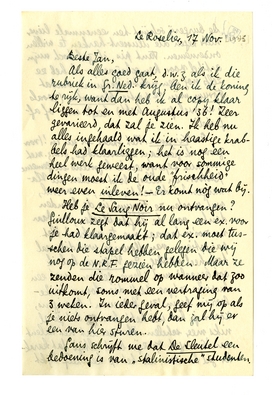 Le Roselier, 17 Nov. 1935
Beste Jan,
Als alles goed gaat, d.w.z als ik die
rubriek in Gr. Ned. krijg, ben ik de koning
te rijk, want dan heb ik al copy klaar
liggen tot en met Augustus '36! Zeer
gevarieerd, dat zal je zien. Ik heb nu
alles ingehaald wat ik in haastige krab-
bels had klaarliggen; het is nog een
heel werk geweest, want voor sommige
dingen moest ik de oude "frischheid"
weer even inleven! – Er komt nog wat bij.
Heb je Le Sang Noir nu ontvangen?
Guilloux zegt dat hij al lang een ex. voor
je had klaargemaakt; dat ex. moet tus-
schen die stapel hebben gelegen die wij
nog op de N.R.F. gezien hebben. Maar ze
zenden die rommel op wanneer dat zoo
uitkomt, soms met een vertraging van
3 weken. In ieder geval, geef mij op als
je niets ontvangen hebt, dan zal hij er
een van hier sturen.
Gans schrijft me dat De Sleutel een
bedoening is van "stalinistische" studenten.